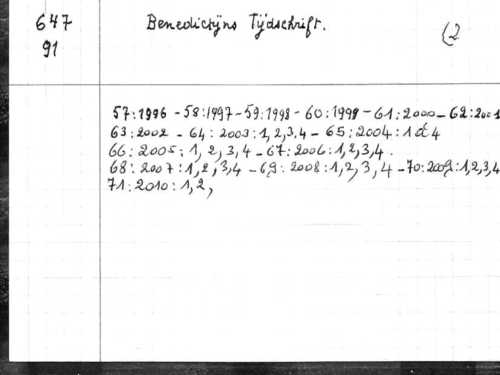 647 Benedictijns Tijdschrift. (2
91
57:1996 - 58:1997 - 59:1998 - 60:1999 - 61:2000 - 62:2001
63:2002 - 64:2003:1,2,3,4 - 65:2004:1 à 4
66:2005:1,2,3,4 - 67:2006:1,2,3,4.
68:2007:1,2,3,4 - 69:2008:1,2,3,4 - 70:2009:1,2,3,4
71:2010:1,2,